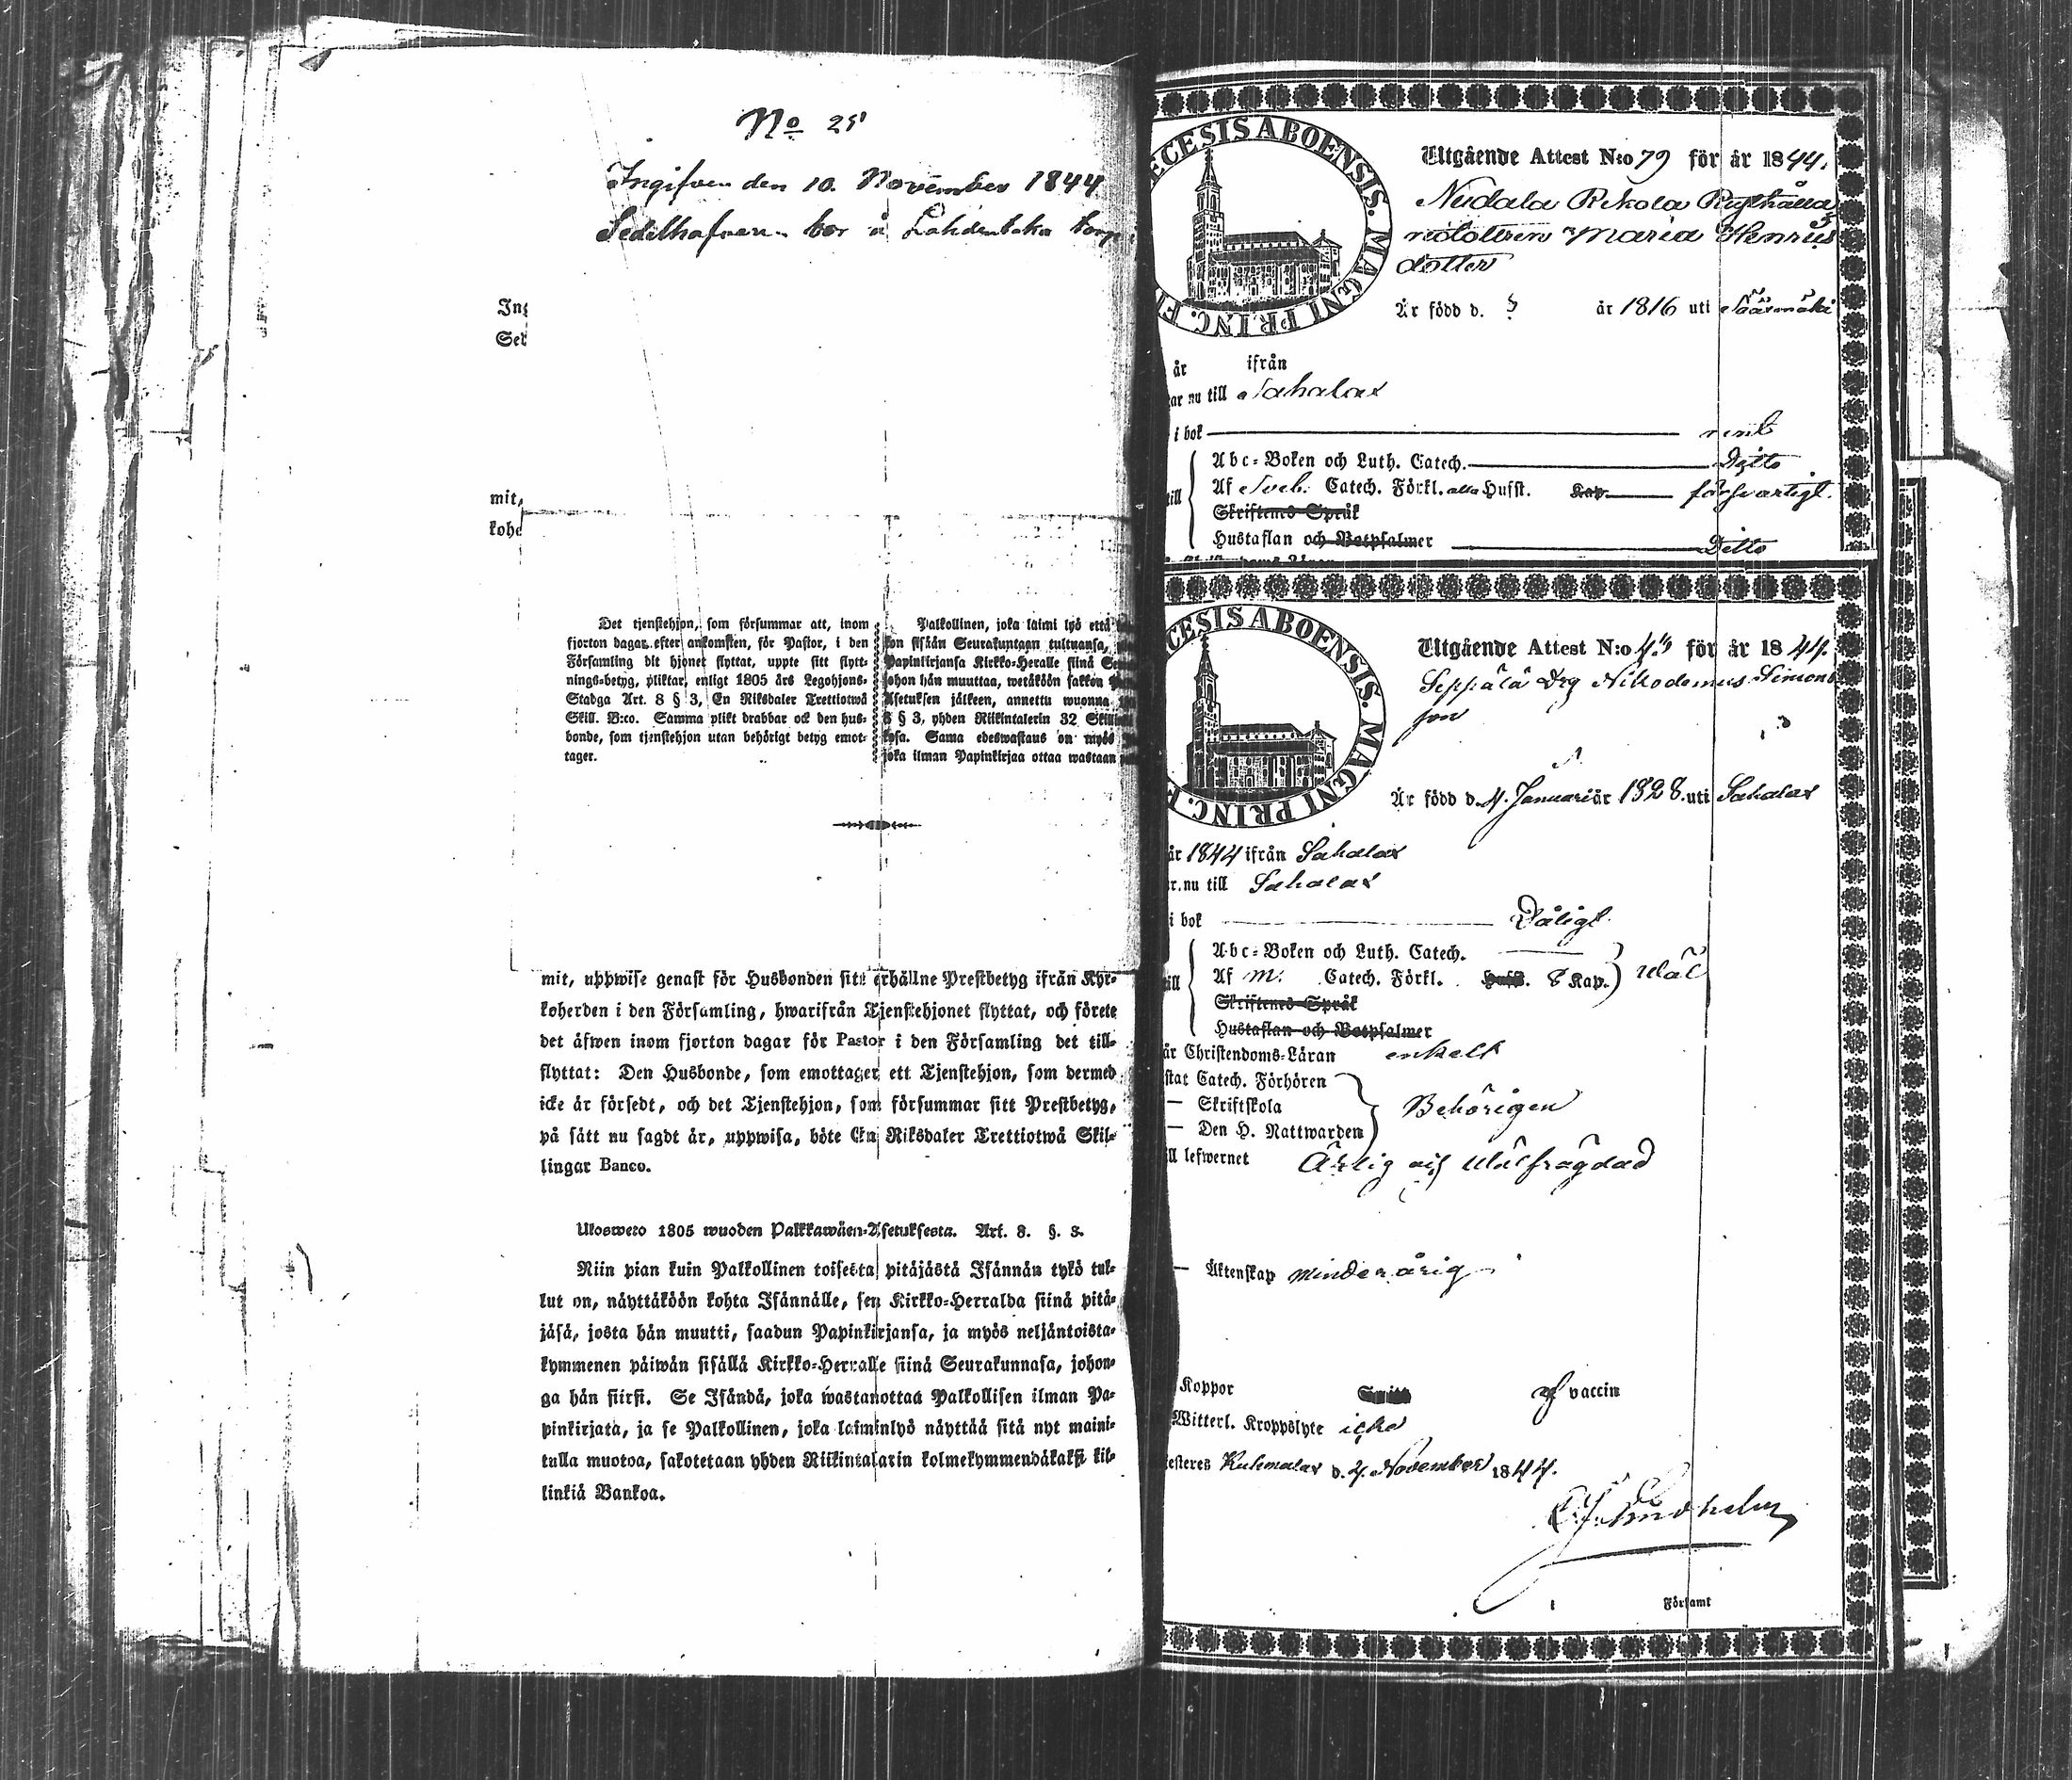 No 25
Ingifven den 10. November 1844
Sedelhafvaren bor å Lahdentaka torp
Ing
Sed
mit,
kohe
Det tjenstehjon, som försummar att, inom
fjorton dagar efter ankomsten, för Pastor, i den
Församling dit hjonet flyttat, uppte sitt flytt-
nings-betyg, pliktar, enligt 1805 års Legohjons-
Stadga Art. 8 § 3, En Riksdaler Trettiotwå
Skill. B:co. Samma plikt drabbar ock den hus-
bonde, som tjenstehjon utan behörigt betyg emot-
tager.
Palkollinen, joka laimi lyö että
kon sisään Seurakuntaan tultuansa,
Papinkirjansa Kirkko-Heralle siinä Se
johon hän muuttaa, wetäköön sakkon
Asetuksen jälkeen, annettu wuonna
8 § 3, yhden Riikintalerin 32 Skill
kosa. Sama edeswastaus on myös
joka ilman Papinkirjaa ottaa wastaan
mit, uppwise genast för Husbonden sitt erhållne Prestbetyg ifrån Kyr-
koherden i den Församling, hwarifrån Tjenstehjonet flyttat, och förete
det äfwen inom fjorton dagar för Pastor i den Församling det till-
flyttat: Den Husbonde, som emottager ett Tjenstehjon, som dermed
icke är försedt, och det Tjenstehjon, som försummar sitt Prestbetyg,
på sätt nu sagdt är, uppwisa, böte En Riksdaler Trettiotwå Skil-
lingar Banco.
Ulosweto 1805 wuoden Palkkawäen-Asetuksesta. Art. 8. §. 3.
Niin pian kuin Palkollinen toisesta pitäjästä Isännän tykö tul-
lut on, näyttäköön kohta Isännälle, sen Kirkko-Herralda siinä pitä-
jäsä, josta hän muutti, saadun Papinkirjansa, ja myös neljäntoista-
kymmenen päiwän sisällä Kirkko-Herralle siinä Seurakunnasa, johon-
ga hän siirsi. Se Isändä, joka wastanottaa Palkollisen ilman Pa-
pinkirjata, ja se Palkollinen, joka laiminlyö näyttää sitä nyt maini-
tulla muotoa, sakotetaan yhden Riikintalarin kolmekymmendäkaksi kil-
linkiä Bankoa.
ECESIS ABOENSIS. MAGNI PRINC. F
Utgående Attest N:o 79 för år 1844.
Nudala Rekola
Maria Henriks
dotter
Är född d. ? år 1816 uti Sääxmäki
år ifrån
ar nu till Sahalax
i bok rent
Abc-Boken och Luth. Catech. Ditto
till Af Sveb. Catech. Förkl. alla Husst. Kap. försvarligt.
Skriftenes Språk
Hustaflan och Botpsalmer Ditto
CESIS ABOENSIS. MAGNI PRINC. F
Utgående Attest N:o för år 1844.
Seppälä Drg Nikodemus Simons
son
Är född d. 4. Januari år 1828. uti Sahalax
år 1844 ifrån Sahalax
r. nu till Sahalax
i bok Dåligt
Abc-Boken och Luth. Catech.
till Af M: Catech. Förkl. Husst. 8 Kap. väl
Skriftenes Språk
Hustaflan och Botpsalmer
är Christendoms-Läran enkelt
stat Catech. Förhören
— Skriftskola Behörigen
— Den H. Nattwarden
ill lefwernet Ärlig och välfrägdad
— Äktenskap minderårig
Koppor vaccin
Witterl. Kroppslyte icke
esteres Kuhmalax d. 4. November 1844.
Församl